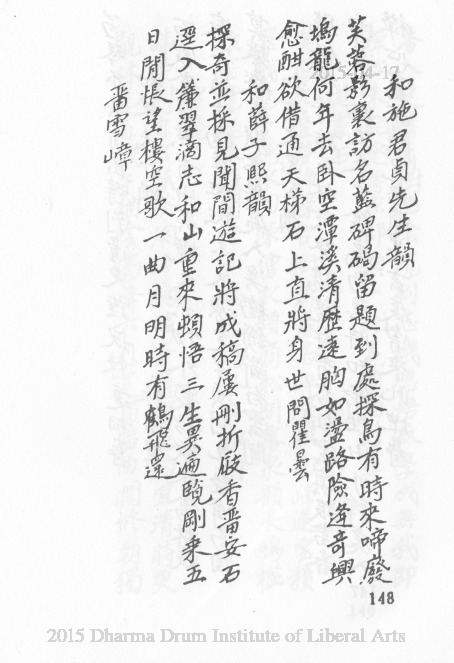 和施君貞先生韻
芙蓉影裏訪名藍碑碣留題到處探鳥有時來啼廢
塢龍何年去卧空潭溪清歷遠胸如盪路險逢奇興
愈酣欲借通天梯石上直將身世問瞿曇
和薛子熙韻
探奇並採見聞間遊記將成稿屢刪折展香畨安石
選入簾翠滴志和山重來頓悟三生異遍覽剛乘五
日閒悵望樓空歌一曲月明時有鶴飛還
畨雪嶂
148
2015 Dharma Drum Institute of Liberal Arts